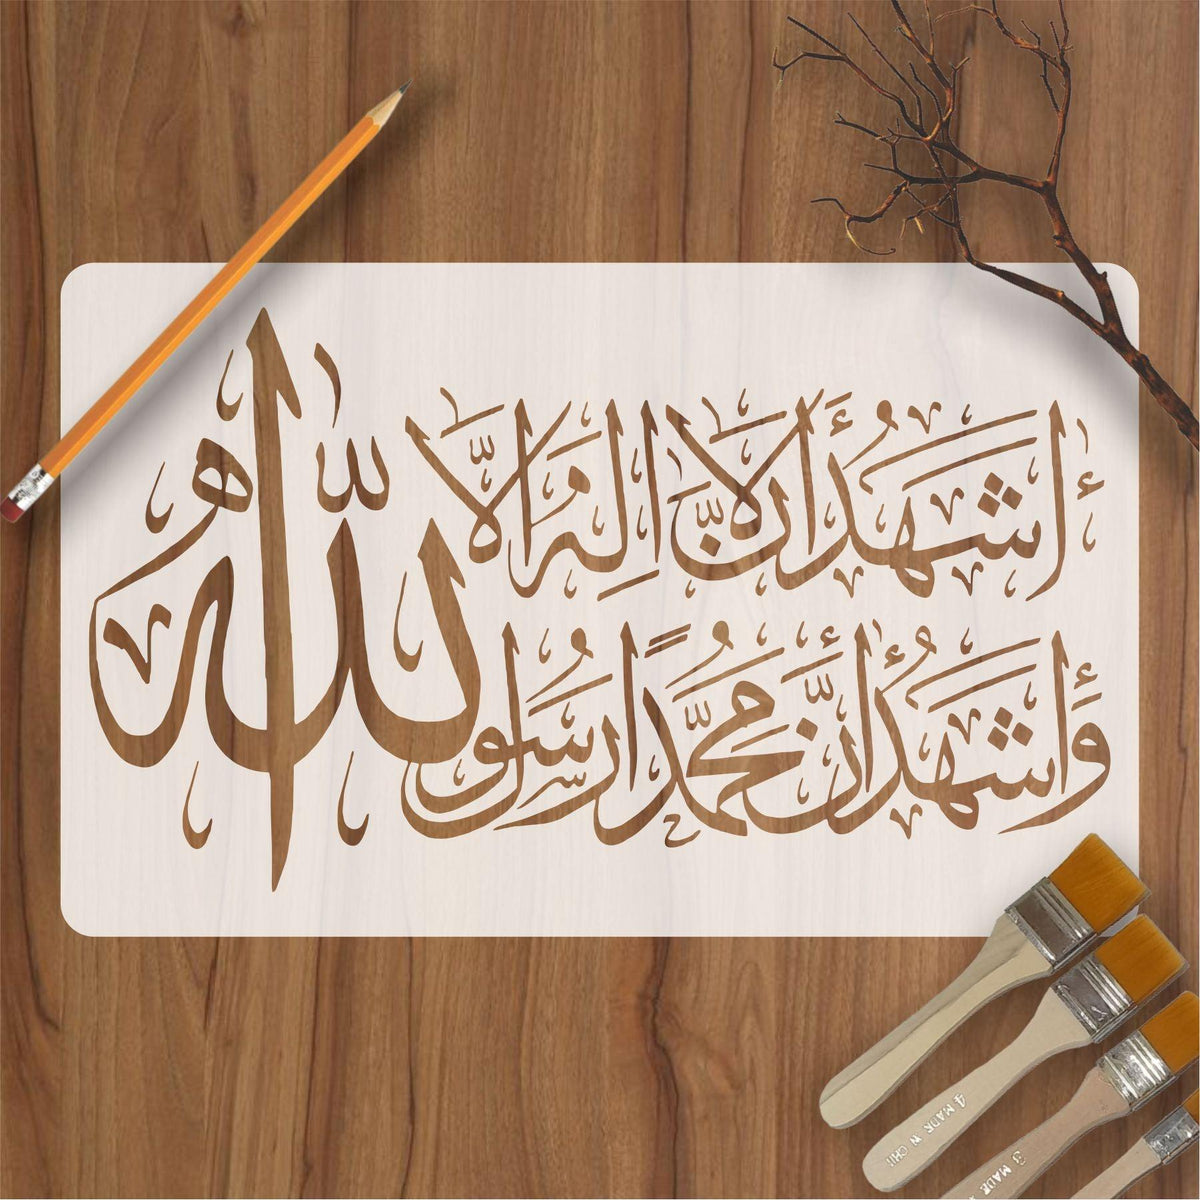 أَشْهَدُ أَنْ لَا إِلٰهَ إِلَّا
وَأَشْهَدُ أَنَّ مُحَمَّدًا رَسُولُ
اللّٰه
4 MADE IN CHI
3 MADE